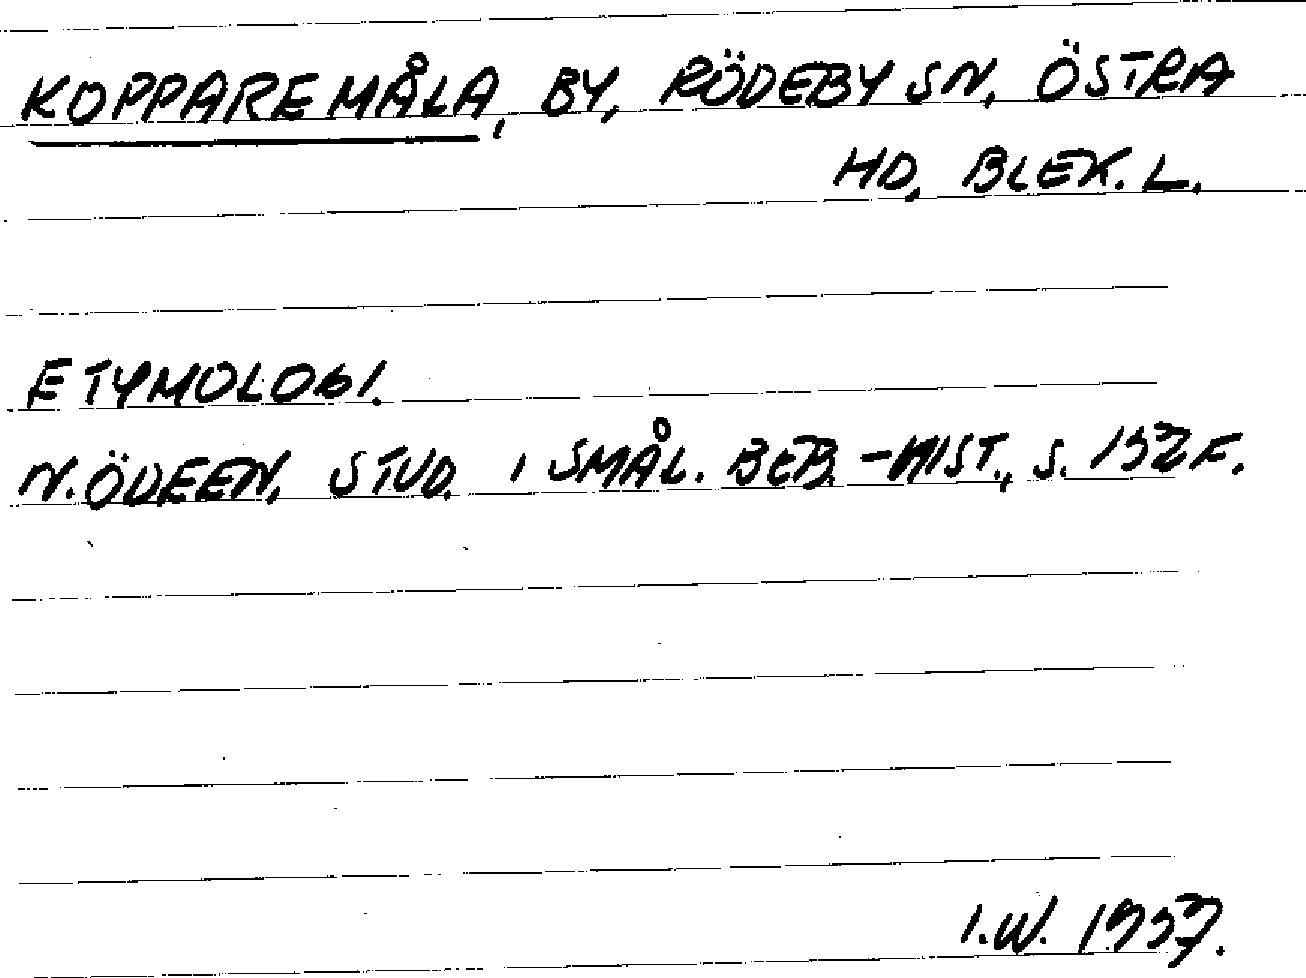 KOPPAREMÅLA, BY, RÖDEBY SN, ÖSTRA
HD, BLEK. L.
ETYMOLOGI.
N. ÖDEEN, STUD. I SMÅL. BEB.-HIST., S.
I.W.